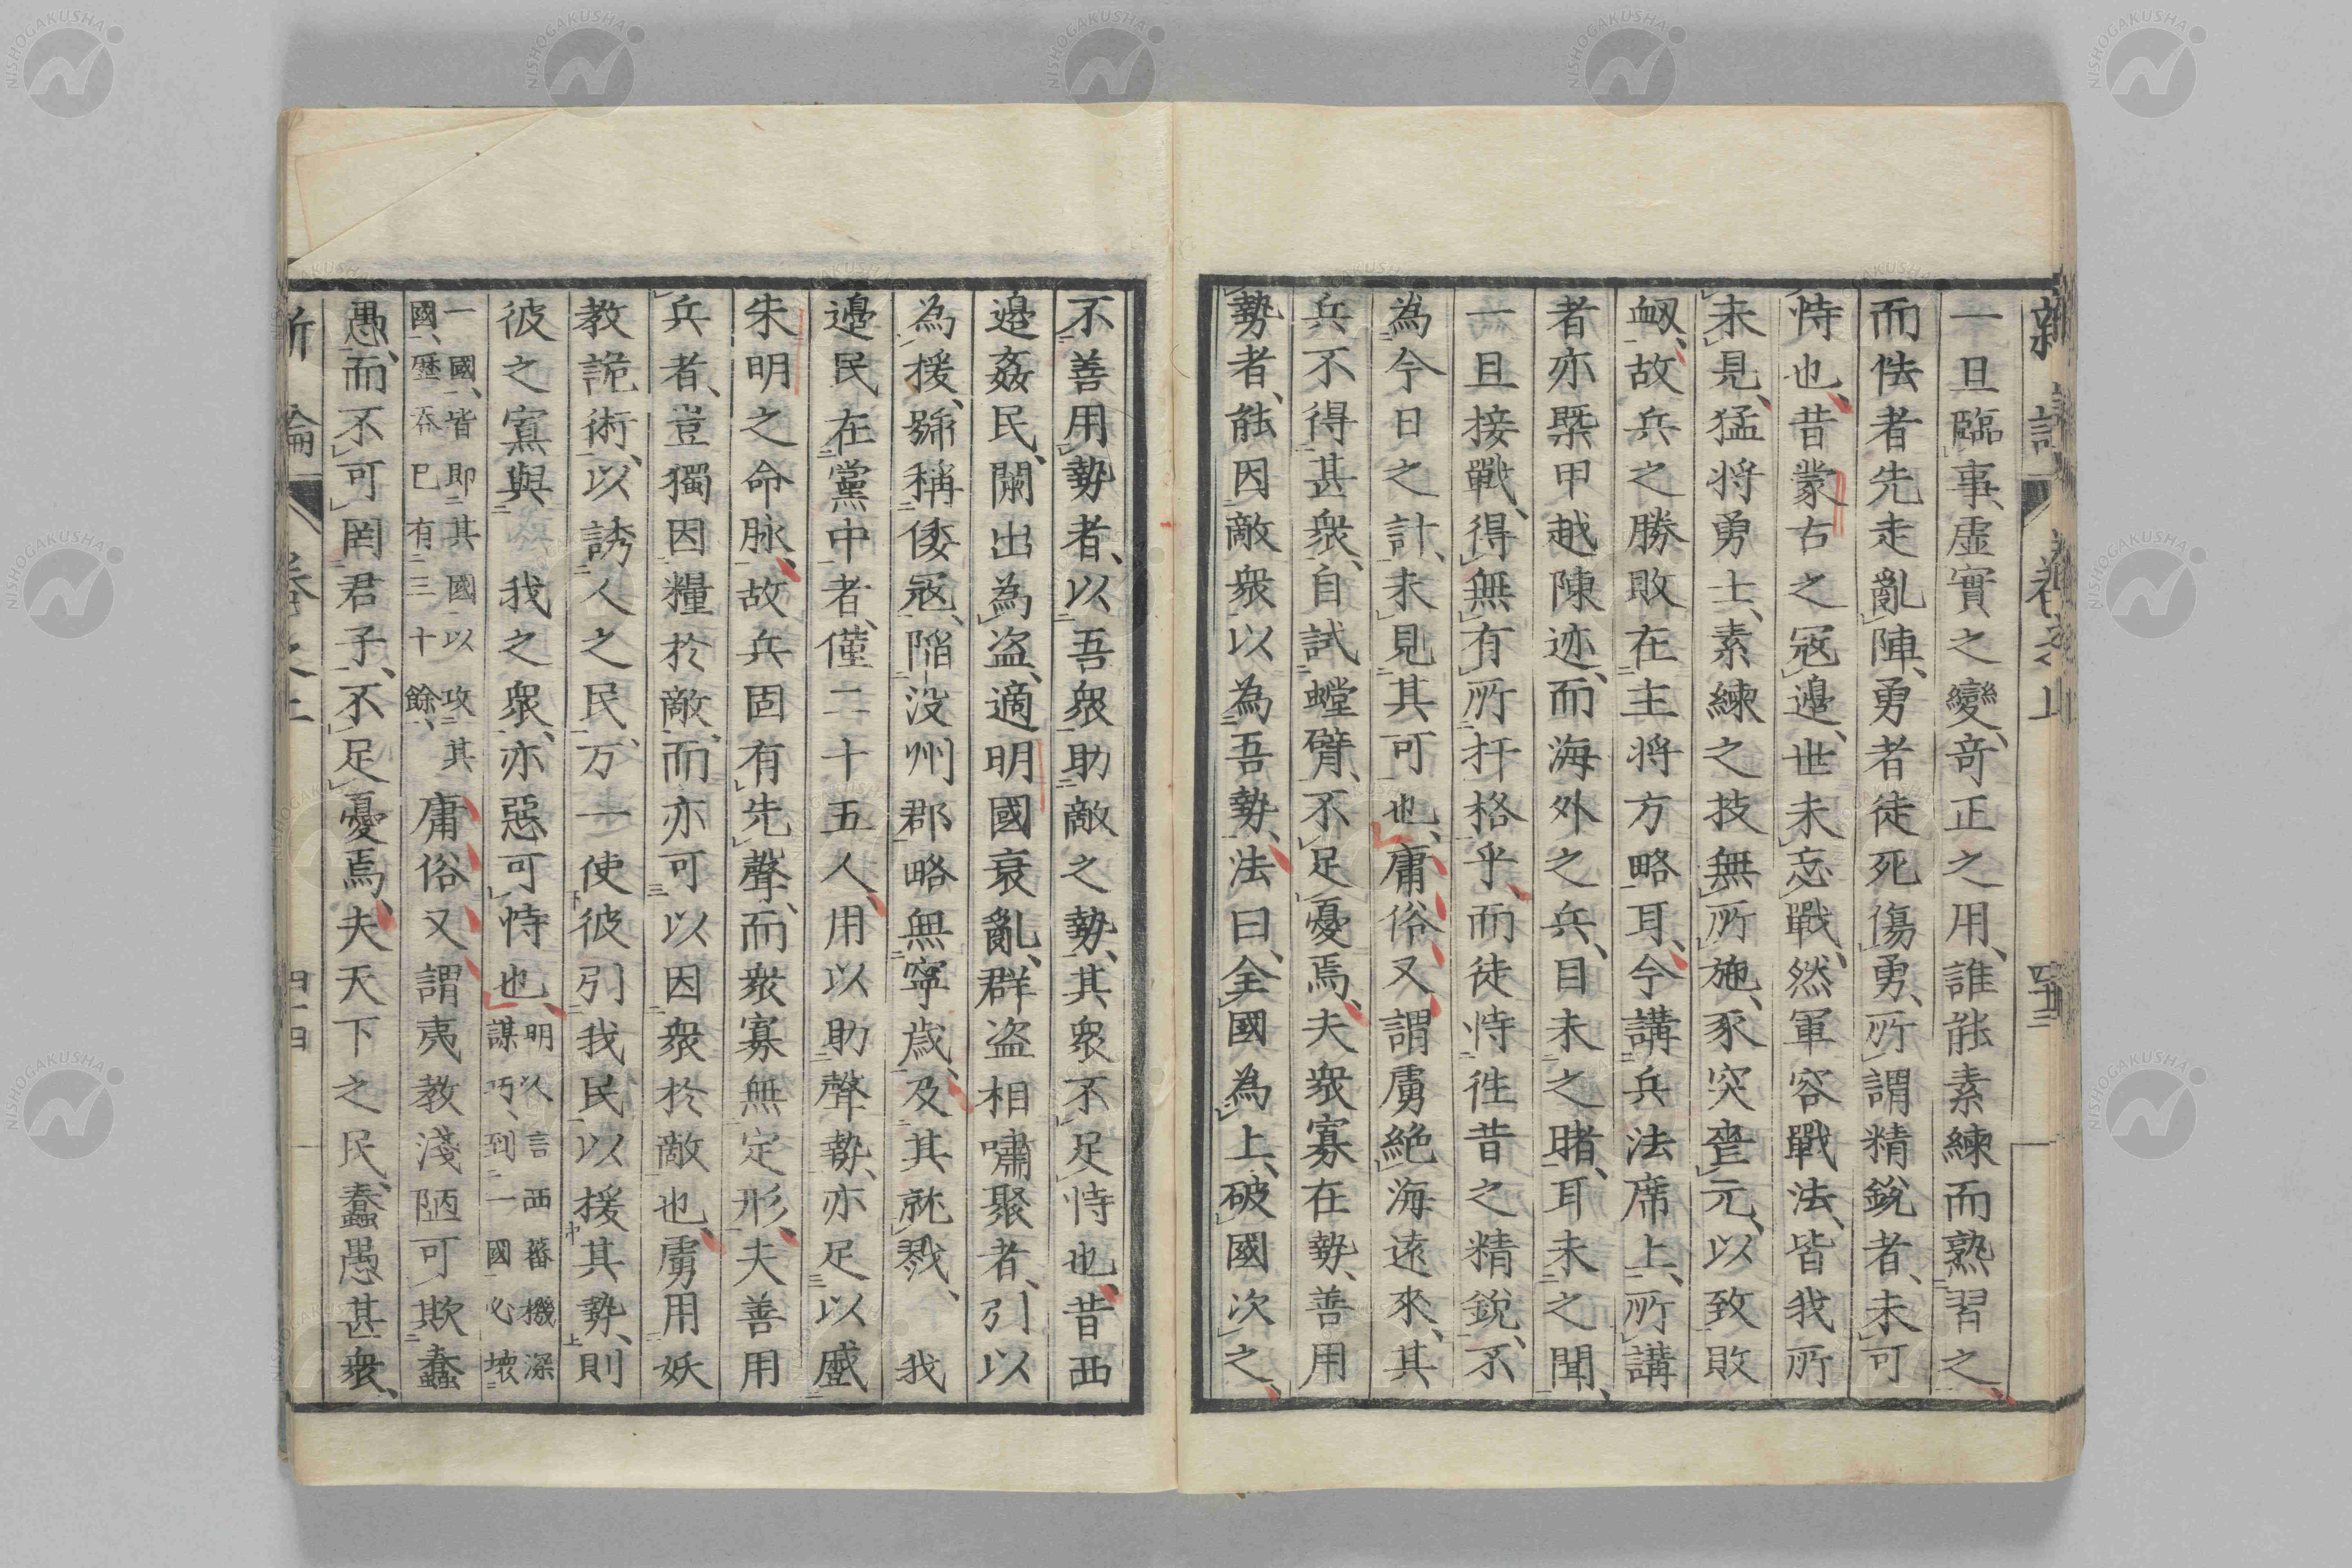 新論 卷之上 四十三
一旦臨事、虛實之變、奇正之用、誰能素練而熟習之、
而怯者先走亂陣、勇者徒死傷勇、所謂精銳者、未可
恃也、昔蒙古之寇邊、世未忘戰、然軍容戰法、皆我所
未見、猛将勇士、素練之技無所施、豕突虀元、以致敗
衂、故兵之勝敗在主将方略耳、今講兵法席上、所講
者亦槩甲越陳迹、而海外之兵、目未之睹、耳未之聞、
一旦接戰、得無有所扞格乎、而徒恃徃昔之精銳、不
為今日之計、未見其可也、庸俗又謂虜絶海遠來、其
兵不得甚衆、自試螳臂、不足憂焉、夫衆寡在勢、善用
勢者、能因敵衆以為吾勢、法曰、全國為上、破國次之、
不善用勢者、以吾衆助敵之勢、其衆不足恃也、昔西
邊姦民、闌出為盗、適明國衰亂、群盗相嘯聚者、引以
為援、號稱倭寇、陷没州郡、略無寧歳、及其就戮、我
邊民在黨中者、僅二十五人、用以助聲勢、亦足以蹙
朱明之命脉、故兵固有先聲、而衆寡無定形、夫善用
兵者、豈獨因糧於敵、而亦可以因衆於敵也、虜用妖
教詭術、以誘人之民、万一使彼引我民以援其勢、則
彼之寡與我之衆、亦惡可恃也、明人言西蕃機深
謀巧、到一國必壞
一國、皆即其國以攻其
國、歷吞巳有三十餘、庸俗又謂夷教淺陋可欺蠢
愚、而不可罔君子、不足憂焉、夫天下之民、蠢愚甚衆、
新論 卷之上 四十四